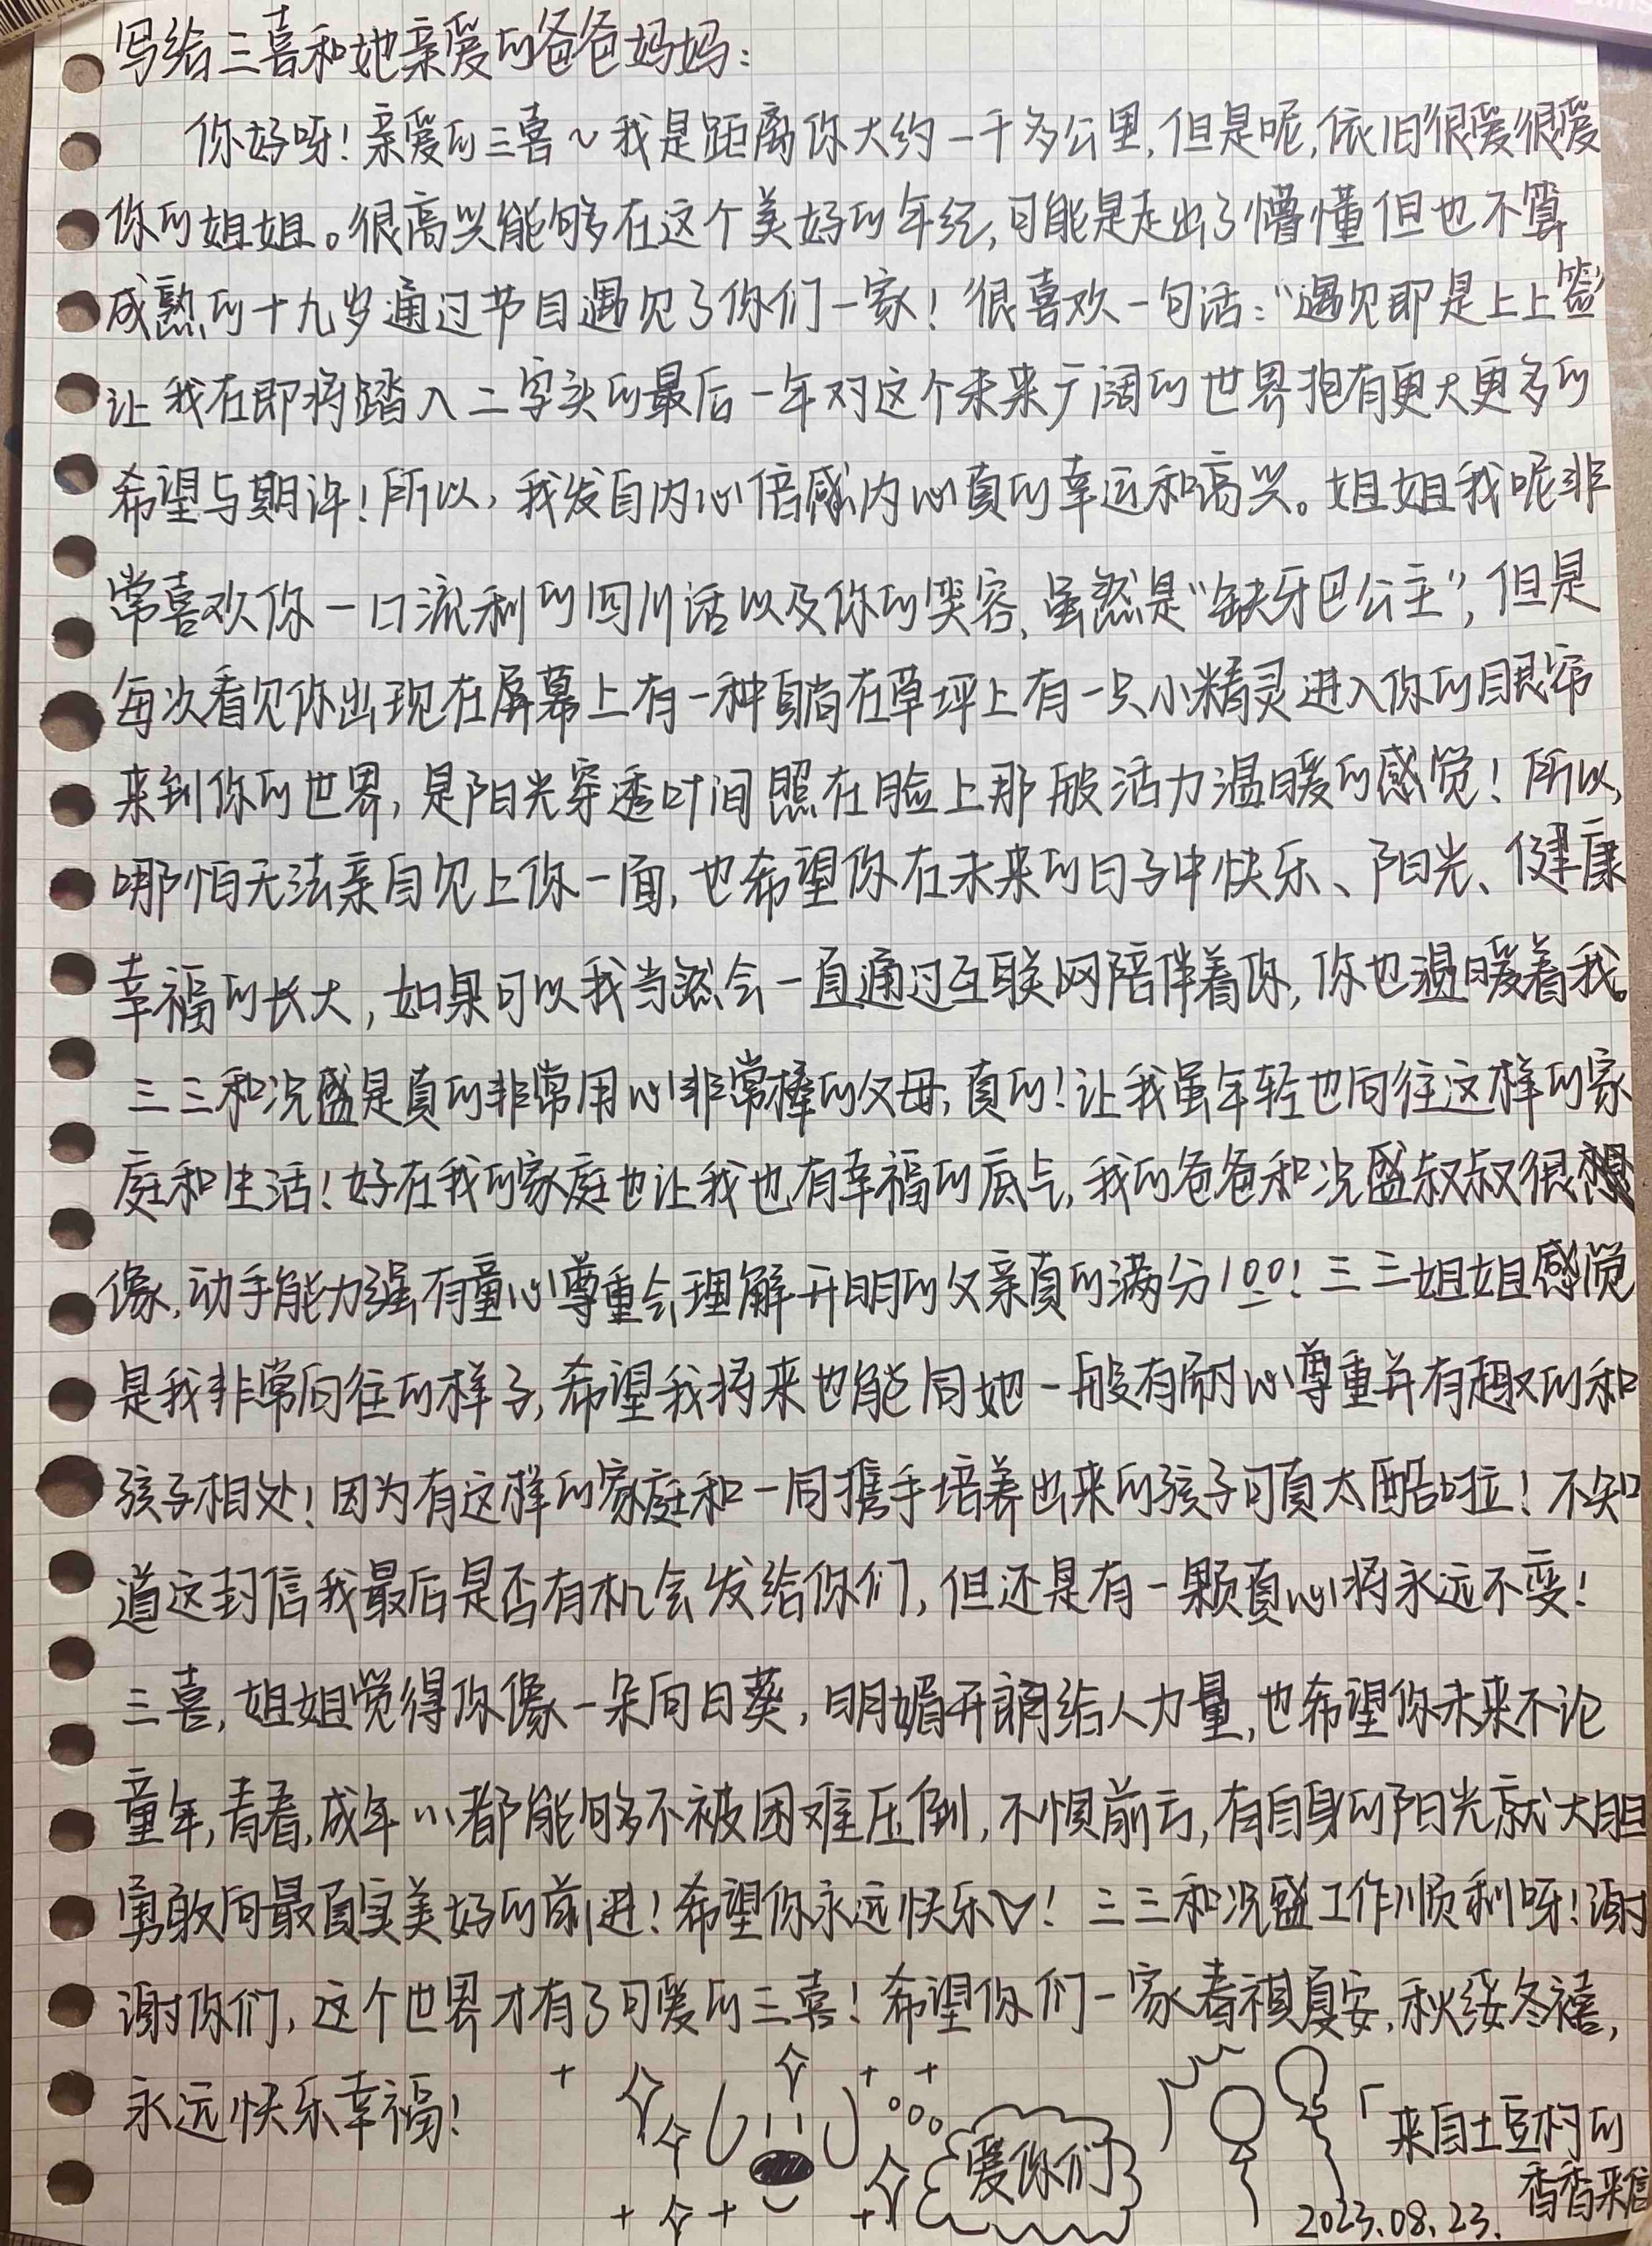 写给三喜和她亲爱的爸爸妈妈：
你好呀！亲爱的三喜～我是距离你大约一千多公里，但是呢，依旧很爱很爱
你的姐姐。很高兴能够在这个美好的年纪，可能是走出了懵懂但也不算
成熟的十九岁通过节目遇见了你们一家！很喜欢一句话：“遇见即是上上签”
让我在即将踏入二字头的最后一年对这个未来广阔的世界抱有更大更多的
希望与期许！所以，我发自内心倍感内心真的幸运和高兴。姐姐我呢非
常喜欢你一口流利的四川话以及你的笑容，虽然是“缺牙巴公主”，但是
每次看见你出现在屏幕上有一种躺在草坪上有一只小精灵进入你的眼帘
来到你的世界，是阳光穿透叶间照在脸上那般活力温暖的感觉！所以，
哪怕无法亲自见上你一面，也希望你在未来的日子中快乐、阳光、健康
幸福的长大，如果可以我当然会一直通过互联网陪伴着你，你也温暖着我。
三三和况盛是真的非常用心非常棒的父母，真的！让我虽年轻也向往这样的家
庭和生活！好在我的家庭也让我也有幸福的底气，我的爸爸和况盛叔叔很
像，动手能力强有童心尊重会理解开明的父亲真的满分100！三三姐姐感觉
是我非常向往的样子，希望我将来也能同她一般有耐心尊重并有趣的和
孩子相处！因为有这样的家庭和一同携手培养出来的孩子可真太酷啦！不知
道这封信我最后是否有机会发给你们，但还是有一颗真心将永远不变！
三喜，姐姐觉得你像一朵向日葵，明媚开朗给人力量，也希望你未来不论
童年，青春，成年…都能够不被困难压倒，不惧前方，有自身的阳光就大胆
勇敢向最真实美好的前进！希望你永远快乐♡！三三和况盛工作顺利呀！谢
谢你们，这个世界才有了可爱的三喜！希望你们一家春祺夏安，秋绥冬禧，
永远快乐幸福！
爱你们
「来自土豆村的
香香来信
2023.08.23.